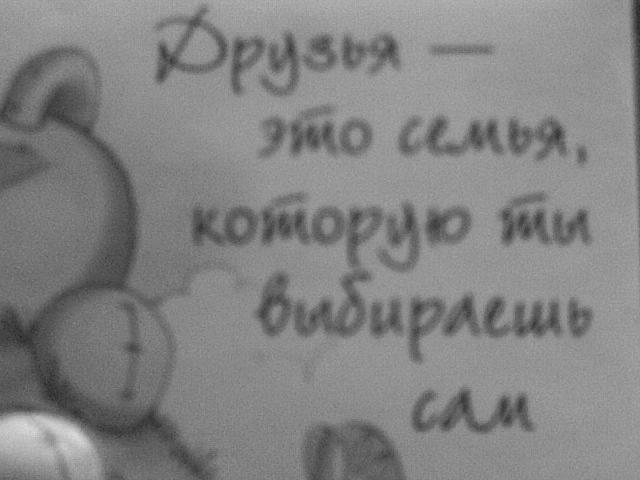 Друзья —
это семья,
которую ты
выбираешь
сам